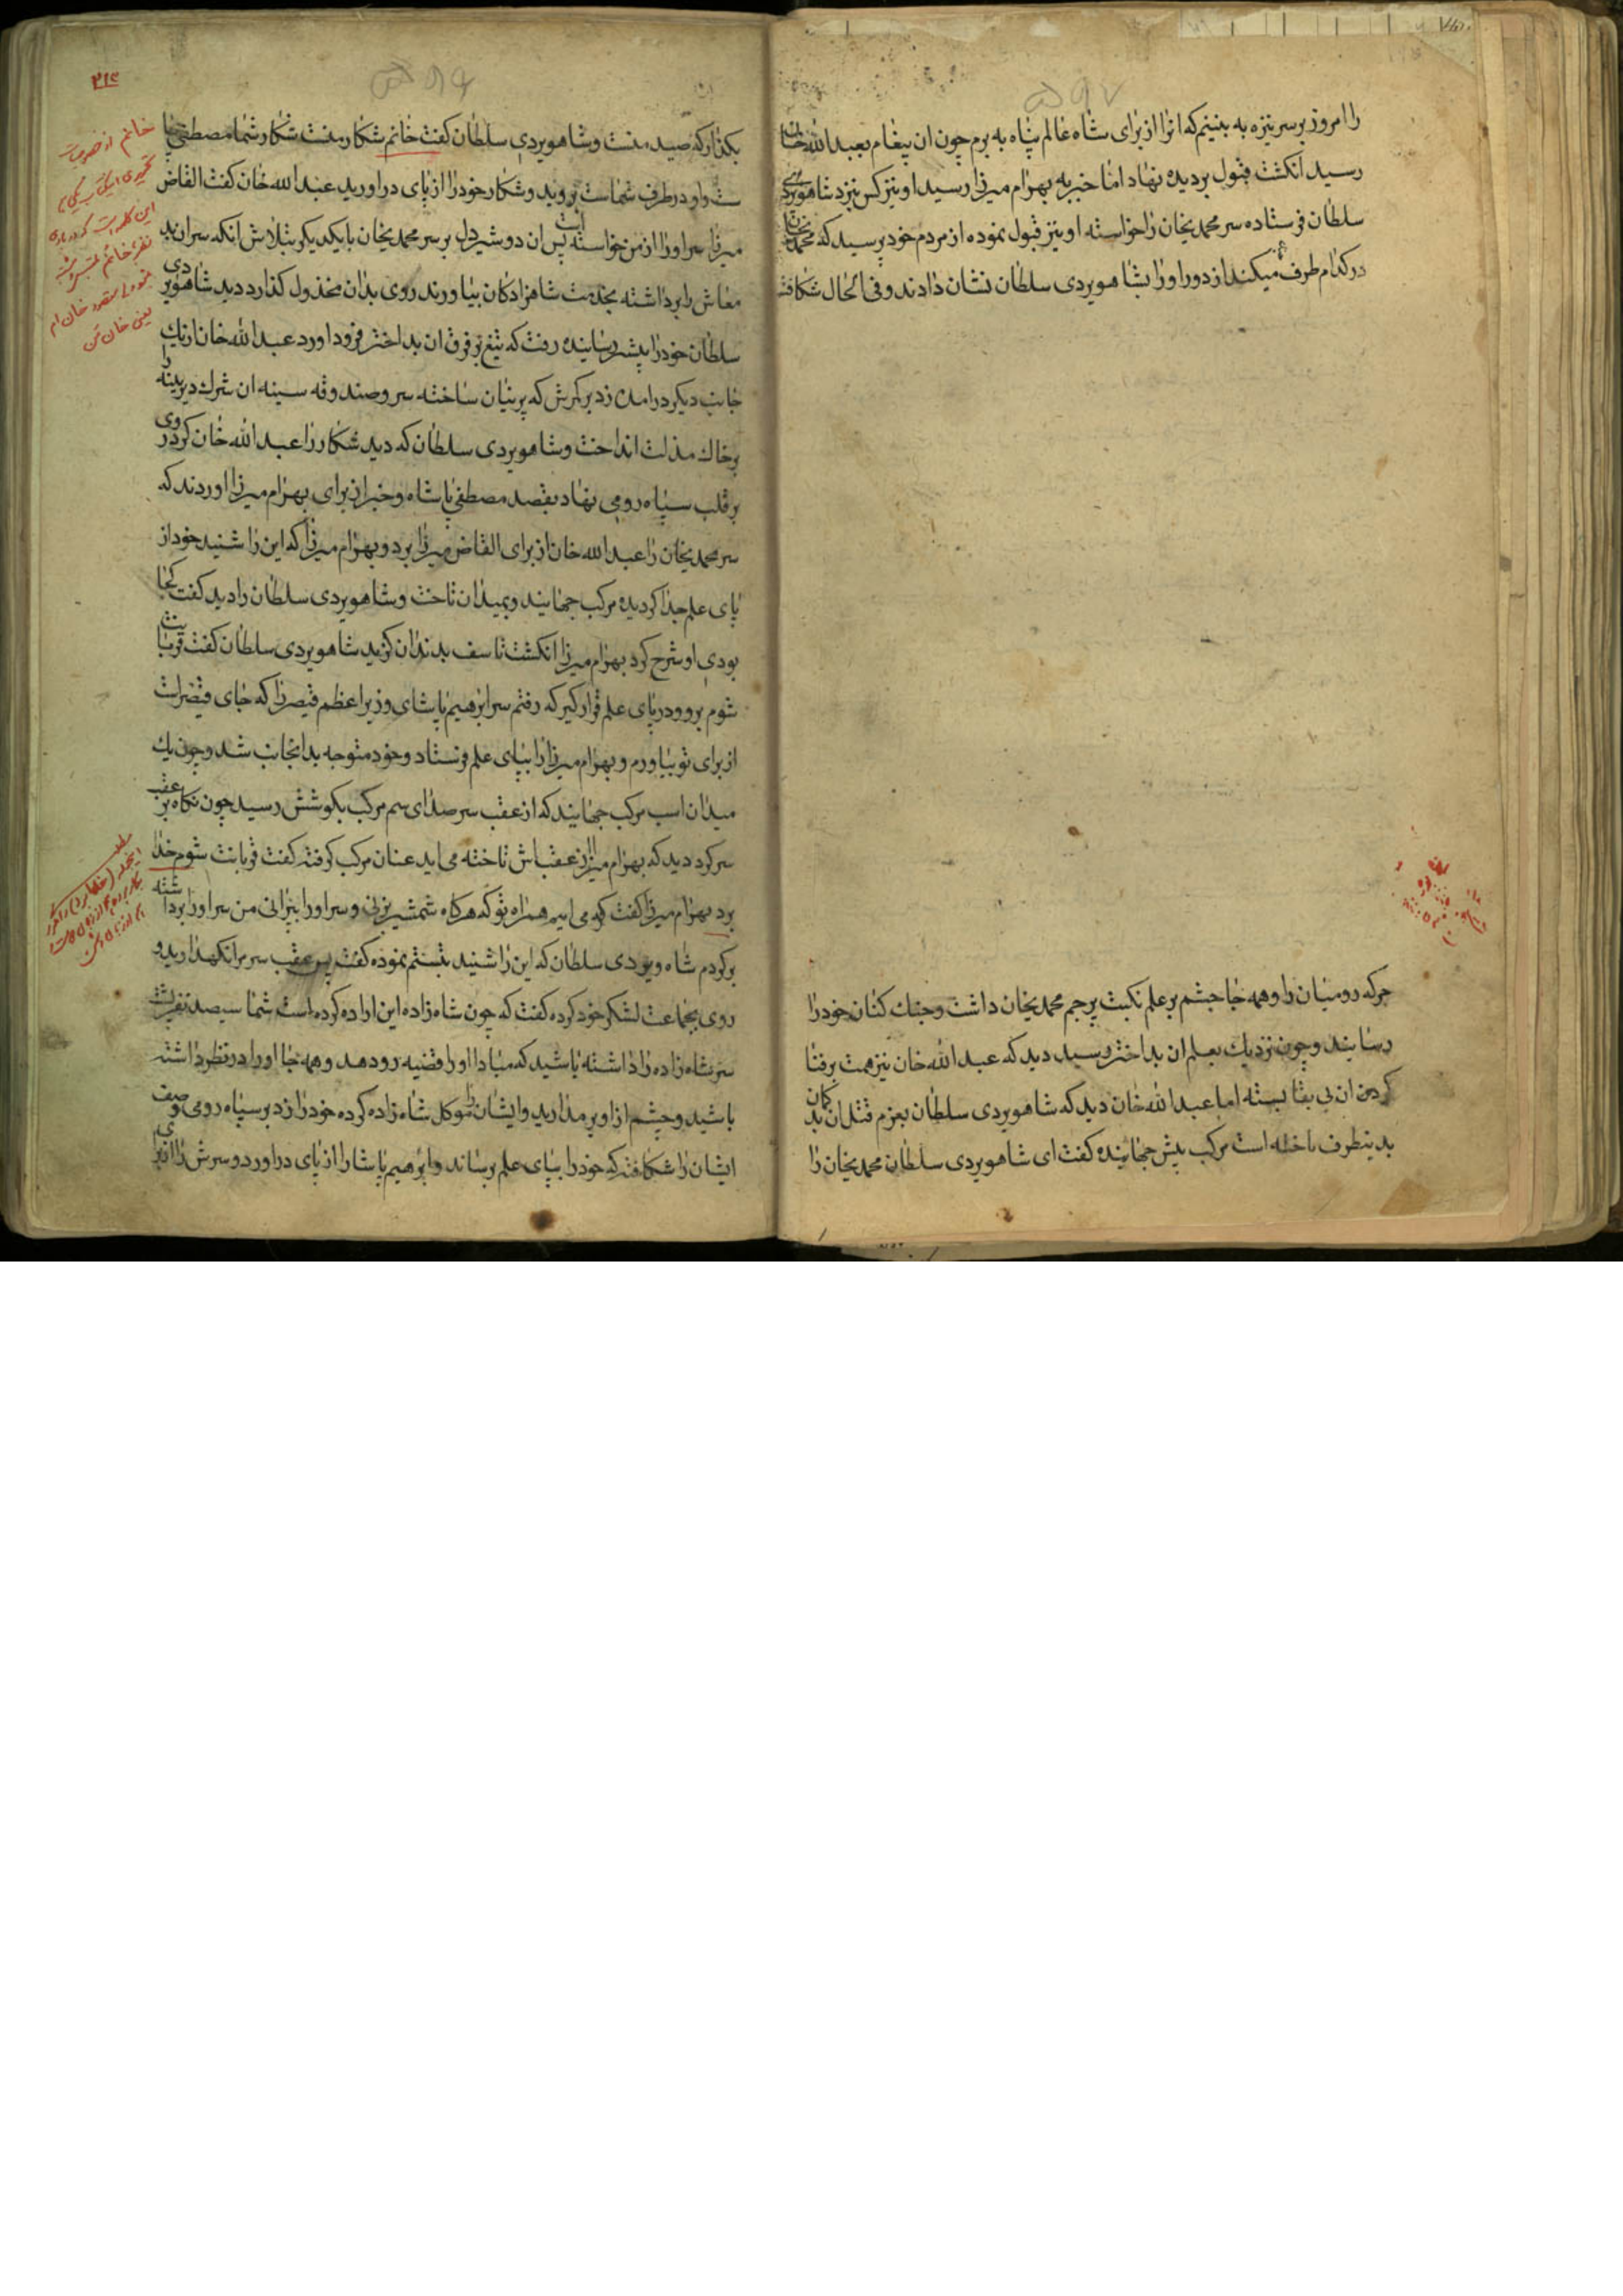 را امروز بر سر نیزه به بینیم که انرا از برای شاه عالم پناه به برم چون ان پیغام بعبد الله خان
رسید انکشت قبول بر دیده نهاد اما خبر به بهرام میرزا رسید او نیز کس نزد شاهویردی
سلطان فرستاده سر محمد یخان را خواسته او نیز قبول نموده از مردم خود پرسید که محمد یخان
در کدام طرف میکند از دور او را بشاهویردی سلطان نشان دادند و فی الحال شکافته
جرکه رومیان را و همه جا چشم بر علم نکبت پرچم محمد یخان داشت و جنك کنان خود را
رسانید و چون نزدیك بعلم ان بداختر رسید دید که عبد الله خان نیز همت بر فنا
کردن ان بی بقا بسته اما عبد الله خان دید که شاهویردی سلطان بعزم قتل ان بد کمان
بدینطرف تاخته است مرکب پیش جهانیده کفت ای شاهویردی سلطان محمد یخان را
۲۱۴
بکذار که صید منست و شاهویردی سلطان کفت خانم شکار منست شکار شما مصطفی پا
ست و او در طرف شماست بروید و شکار خود را از پای در اورید عبد الله خان کفت القاص
میرزا سر او را از من خواسته است پس ان دو شیر دل بر سر محمد یخان با یکدیکر بتلاش انکه سر ان بد
معاش را برداشته بخدمت شاهزادکان بیاورند روی بدان مخذول کذارد دید شاهویردی
سلطان خود را پیشتر رسانیده رفت که تیغ بر فرق ان بداختر فرود اورد عبد الله خان از یك
جانب دیکر در امده زد بر کمرش که پرنیان ساخته سر و صندوقه سینه ان شرك دیرینه را
بر خاك مذلت انداخت و شاهویردی سلطان که دید شکار را عبد الله خان کرد روی
بر قلب سپاه رومی نهاد بقصد مصطفی پاشاه و خبر از برای بهرام میرزا اوردند که
سر محمد یخان را عبد الله خان از برای القاص میرزا برد و بهرام میرزا که این را شنید خود از
پای علم جدا کردیده مرکب جهانید و بمیدان تاخت و شاهویردی سلطان را دید کفت کجا
بودی او شرح کرد بهرام میرزا انکشت تاسف بدندان کزید شاهویردی سلطان کفت قربانت
شوم برو و در پای علم قرار کیر که رفتم سر ابرهیم پاشای وزیر اعظم قیصر را که جای قیصر است
از برای تو بیاورم و بهرام میرزا را بپای علم فرستاد و خود متوجه بدانجانب شد و چون یك
میدان اسب مرکب جهانید که از عقب سر صدای سم مرکب بکوشش رسید چون نکاه بر عقب
سر کرد دید که بهرام میرزا از عقبش تاخته می اید عنان مرکب کرفته کفت قربانت شوم خدا
برد بهرام میرزا کفت که می ایم همراه تو که هر کاه شمشیر بزنی و سر او را بپرانی من سر او را برداشته
بر کردم شاه ویردی سلطان که این را شنید تبستم نموده کفت پس عقب سر مرا نکهدارید و
روی بجماعت لشکر خود کرده کفت که چون شاه زاده این اراده کرده است شما سیصد نفر پشت
سر شاه زاده را داشته باشید که مبادا او را قضیه رو دهد و همه جا او را در نظر داشته
باشید و چشم از او بر مدارید و ایشان را موکل شاه زاده کرده خود را زد بر سپاه رومی و صف
ایشان را شکافته که خود را بپای علم برساند و ابرهیم پاشا را از پای در اورد و سرش را از برای